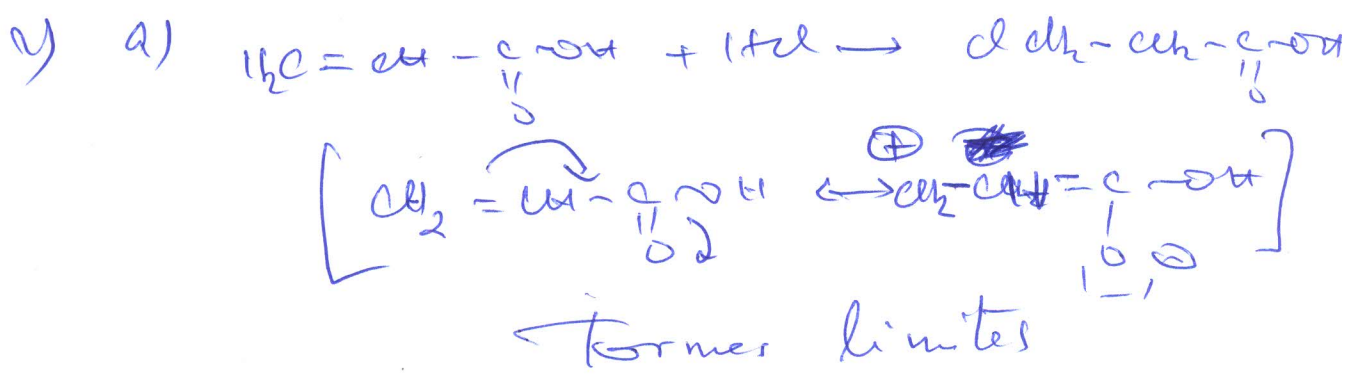 2) a) H₂C = CH - C - OH + HCl → Cl CH₂ - CH₂ - C - OH
|| ||
O O
⊕
[ CH₂ = CH - C - OH ↔ CH₂ - CH = C - OH ]
|| |
O O ⊖
Formes limites